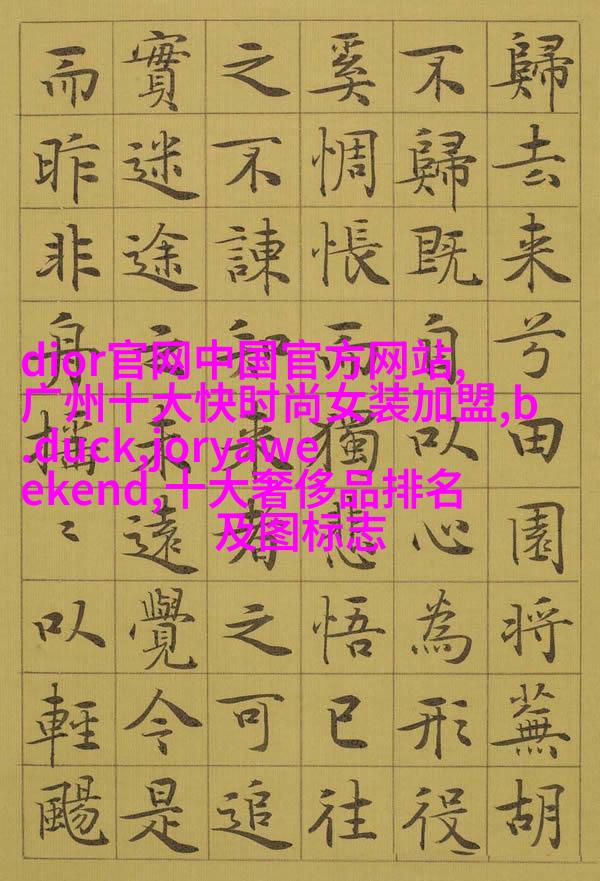 歸去来兮田園将蕪胡
不歸既自以心為形役
奚惆悵而獨悲悟已往
之不諫知来者之可追
實迷途未遠覺今是
而昨非舟摇〻以輕颺
dior官网中国官方网站,
广州十大快时尚女装加盟,b
.duck,joryawe
ekend,十大奢侈品排名
及图标志